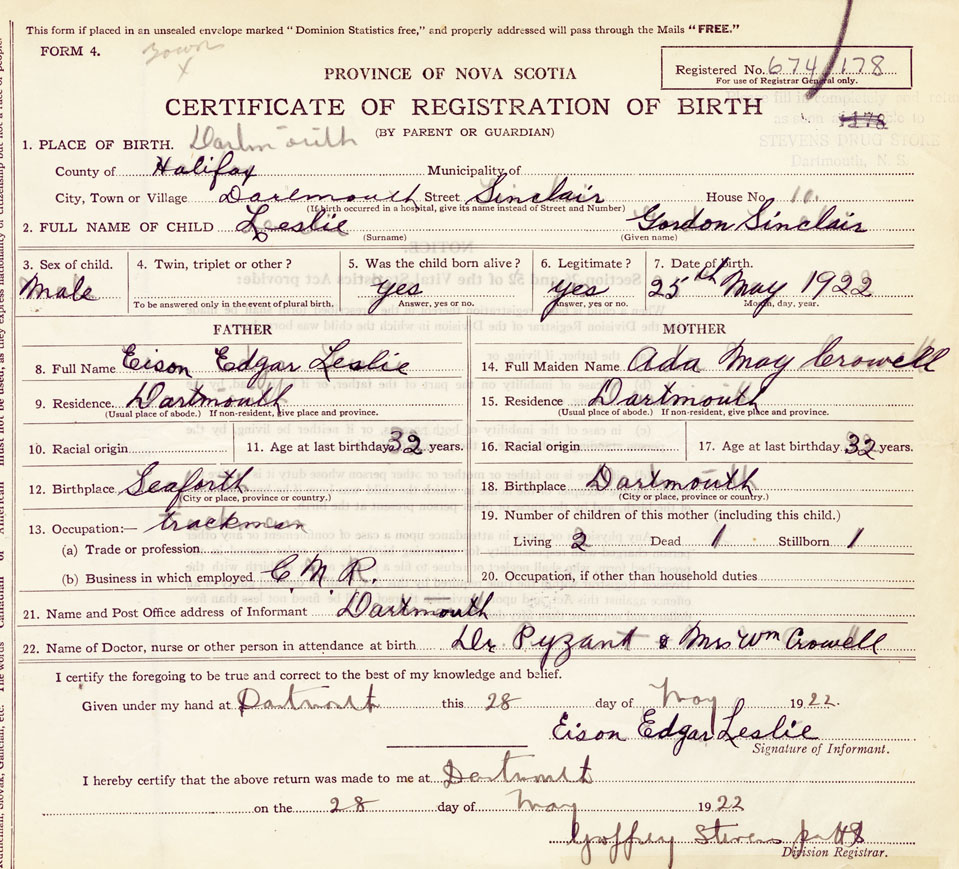 This form if placed in an unsealed envelope marked "Dominion Statistics free," and properly addressed will pass through the Mails "FREE."
FORM 4.
Town
x
Registered No. 674/178
For use of Registrar General only.
PROVINCE OF NOVA SCOTIA
CERTIFICATE OF REGISTRATION OF BIRTH
(BY PARENT OR GUARDIAN)
1178
STEVENS DRUG STORE
Dartmouth, N. S.
1. PLACE OF BIRTH. Dartmouth
County of Halifax Municipality of
City, Town or Village Dartmouth Street Sinclair House No. 10.
(If birth occurred in a hospital, give its name instead of Street and Number)
2. FULL NAME OF CHILD Leslie Gordon Sinclair
(Surname) (Given name)
3. Sex of child. 4. Twin, triplet or other? 5. Was the child born alive? 6. Legitimate? 7. Date of birth.
Male yes yes 25th May 1922
To be answered only in the event of plural birth. Answer, yes or no. Answer, yes or no. Month, day, year.
FATHER MOTHER
8. Full Name Eison Edgar Leslie 14. Full Maiden Name Ada May Crowell
9. Residence Dartmouth 15. Residence Dartmouth
(Usual place of abode.) If non-resident, give place and province. (Usual place of abode.) If non-resident, give place and province.
10. Racial origin 11. Age at last birthday 32 years. 16. Racial origin 17. Age at last birthday 32 years.
12. Birthplace Seaforth 18. Birthplace Dartmouth
(City or place, province or country.) (City or place, province or country.)
13. Occupation:— trackman 19. Number of children of this mother (including this child.)
(a) Trade or profession Living 2 Dead 1 Stillborn 1
(b) Business in which employed C. N. R. 20. Occupation, if other than household duties
21. Name and Post Office address of Informant Dartmouth
22. Name of Doctor, nurse or other person in attendance at birth Dr Pyzant & Mrs Wm Crowell
I certify the foregoing to be true and correct to the best of my knowledge and belief.
Given under my hand at Dartmouth this 28 day of May 1922.
Eison Edgar Leslie
Signature of Informant.
I hereby certify that the above return was made to me at Dartmouth
on the 28 day of May 1922
Goffrey Stevens
Division Registrar.